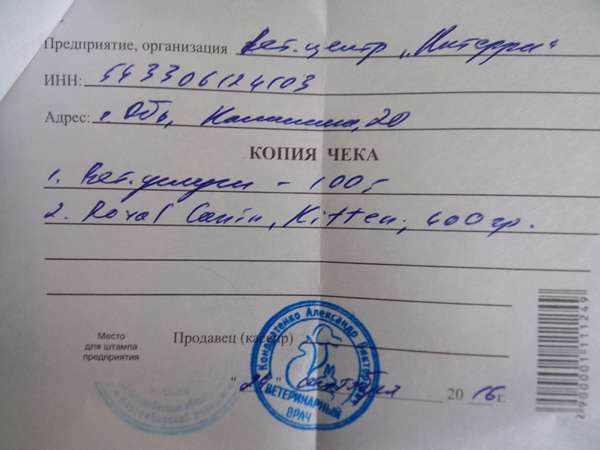 Предприятие, организация Вет.центр „Интерри“
ИНН: 543306124103
Адрес: г. Обь, Калинина, 20
КОПИЯ ЧЕКА
1. Вет. услуги - 100
2. Royal Canin, Kitten, 400 гр.
Место
для штампа
предприятия
Продавец (кассир)
Кондратенко Александр Викторович
ВЕТЕРИНАРНЫЙ
ВРАЧ
" " сентября 2016 г.
2900001111249